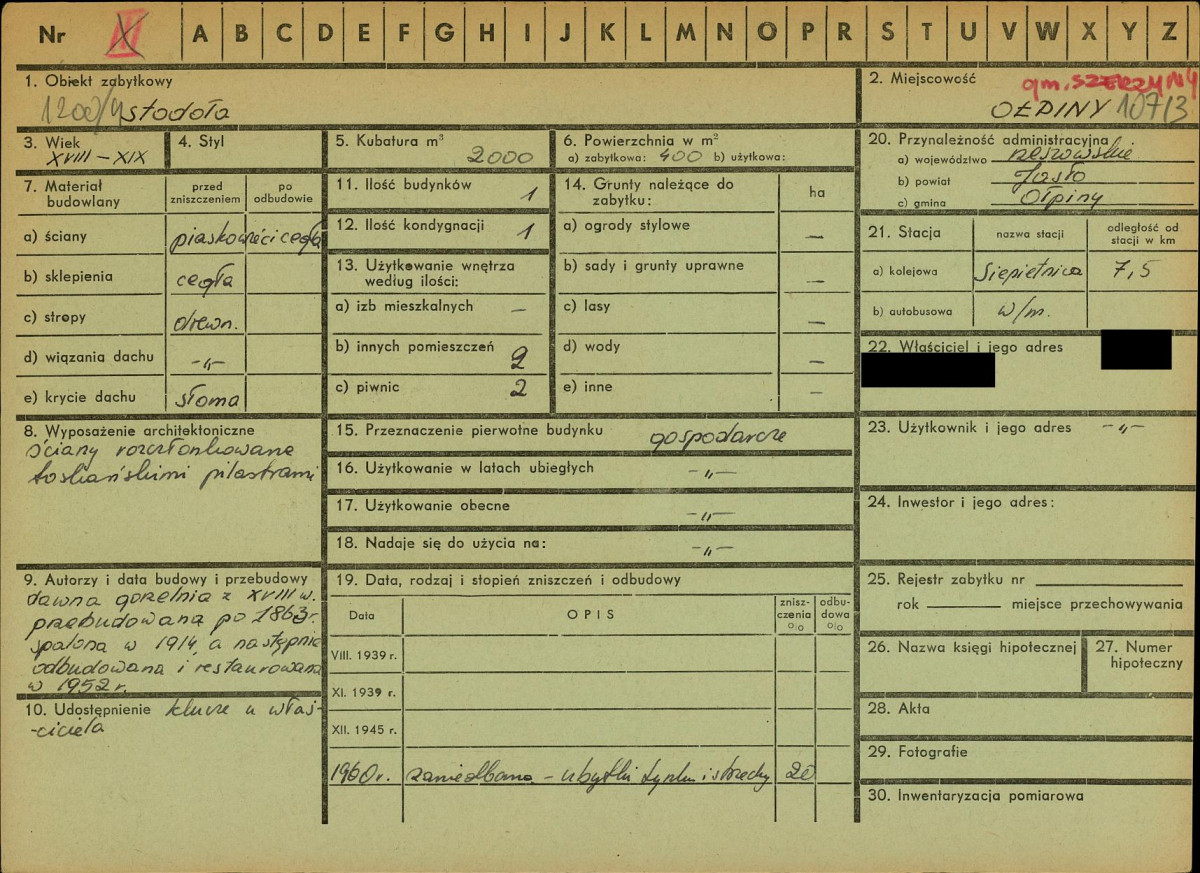 Nr III A B C D E F G H I J K L M N O P R S T U V W X Y Z
1. Obiekt zabytkowy
1200/4 stodoła
2. Miejscowość gm. SZERZYNY
OŁPINY 10713
3. Wiek
XVIII – XIX
4. Styl
5. Kubatura m³
2000
6. Powierzchnia w m²
a) zabytkowa: 400 b) użytkowa:
7. Materiał budowlany
przed zniszczeniem
po odbudowie
a) ściany piaskowiec i cegła
b) sklepienia cegła
c) stropy drewn.
d) wiązania dachu -„-
e) krycie dachu słoma
8. Wyposażenie architektoniczne
ściany rozczłonkowane
toskańskimi pilastrami
9. Autorzy i data budowy i przebudowy
dawna gorzelnia z XVIII w.
przebudowana po 1863 r.
spalona w 1914, a następnie
odbudowana i restaurowana
w 1952 r.
10. Udostępnienie klucze u właś-
-ciciela
11. Ilość budynków 1
12. Ilość kondygnacji 1
13. Użytkowanie wnętrza
według ilości:
a) izb mieszkalnych –
b) innych pomieszczeń 2
c) piwnic 2
14. Grunty należące do
zabytku:
ha
a) ogrody stylowe –
b) sady i grunty uprawne –
c) lasy –
d) wody –
e) inne –
15. Przeznaczenie pierwotne budynku gospodarcze
16. Użytkowanie w latach ubiegłych -„-
17. Użytkowanie obecne -„-
18. Nadaje się do użycia na: -„-
19. Data, rodzaj i stopień zniszczeń i odbudowy
Data
OPIS
znisz-
czenia
%
odbu-
dowa
%
VIII. 1939 r.
XI. 1939 r.
XII. 1945 r.
1960 r. zaniedbana – ubytki tynku i strzechy 20
20. Przynależność administracyjna
a) województwo rzeszowskie
b) powiat Jasło
c) gmina Ołpiny
21. Stacja
nazwa stacji
odległość od
stacji w km
a) kolejowa Siepietnica 7,5
b) autobusowa w/m.
22. Właściciel i jego adres
23. Użytkownik i jego adres -„-
24. Inwestor i jego adres:
25. Rejestr zabytku nr
rok miejsce przechowywania
26. Nazwa księgi hipotecznej
27. Numer
hipoteczny
28. Akta
29. Fotografie
30. Inwentaryzacja pomiarowa